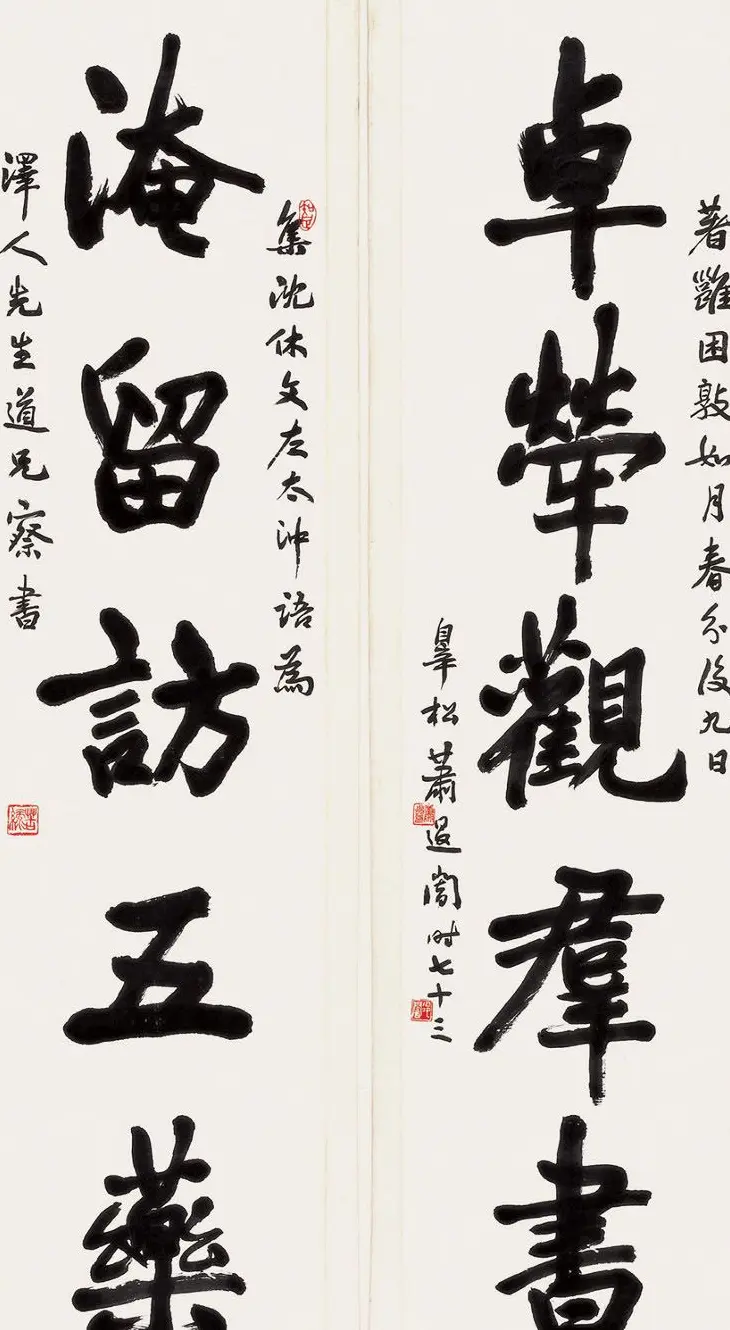 著雝困敦如月春分後九日
卓犖觀羣書
皋松蕭退闇時七十三
集沈休文左太沖語為
淹留訪五藥
澤人先生道兄察書